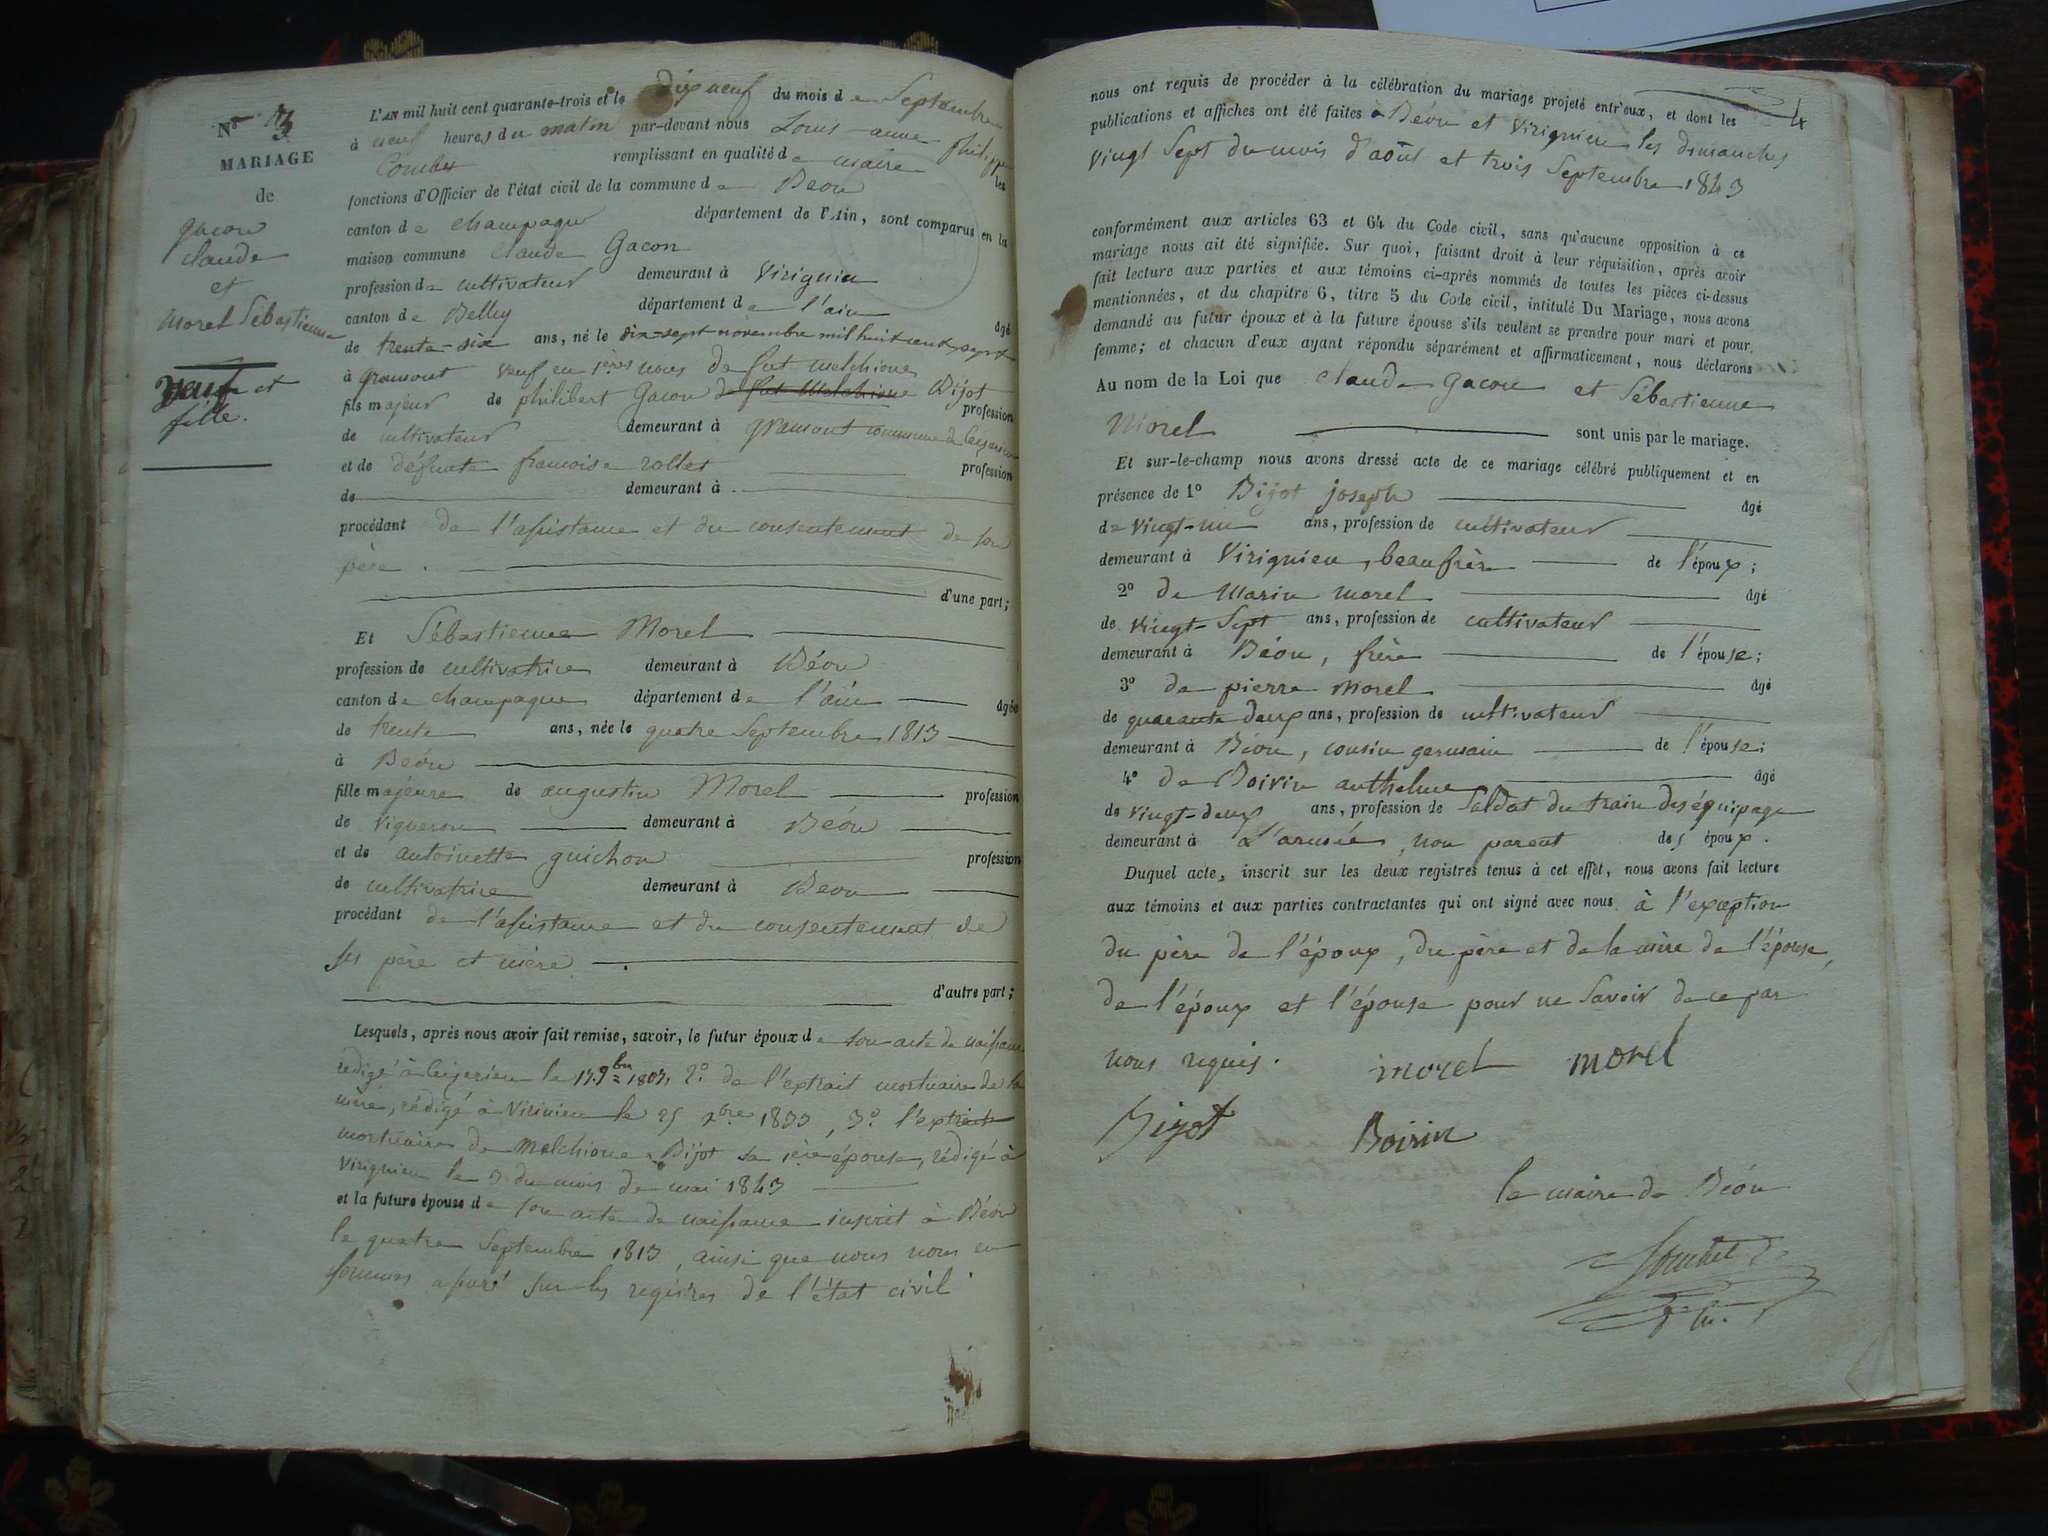 N° 3
MARIAGE
de
gacon
claude
et
Morel Sébastienne
Veuf et
fille.
L'AN mil huit cent quarante-trois et le dix neuf du mois de Septembre
à neuf heures du matin par-devant nous Louis-anne philippe
Combet remplissant en qualité de maire les
fonctions d'Officier de l'état civil de la commune de Béon
canton de champagne département de l'Ain, sont comparus en la
maison commune Claude Gacon
profession de cultivateur demeurant à Virignin
canton de Belley département de l'ain âgé
de trente-six ans, né le dix-sept novembre mil huit cent sept
à gramont veuf en 1ères noces de fut melchione
fils majeur de philibert Gacon de fut Melchione Bijot profession
de cultivateur demeurant à gramont commune de Ceyzerieu
et de défunte francoise rollet profession
de demeurant à
procédant de l'assistance et du consentement de son
père.
d'une part;
Et Sébastienne Morel
profession de cultivatrice demeurant à Béon
canton de champagne département de l'ain âgée
de trente ans, née le quatre Septembre 1813
à Béon
fille majeure de augustin Morel profession
de vigneron demeurant à Béon
et de antoinette guichon profession
de cultivatrice demeurant à Béon
procédant de l'assistance et du consentement de
ses père et mère
d'autre part;
Lesquels, après nous avoir fait remise, savoir, le futur époux de son acte de naissance
rédigé à Ceyzerieu le 17 9bre 1807, 2° de l'extrait mortuaire de sa
mère, rédigé à Virinien le 25 xbre 1833, 3° l'extrait
mortuaire de Melchione Bijot sa 1ère épouse, rédigé à
Virignien le 3 du mois de mai 1843
et la future épouse de son acte de naissance inscrit à Béon
le quatre Septembre 1813, ainsi que nous nous en
sommes assuré sur les regisres de l'état civil.
4
nous ont requis de procéder à la célébration du mariage projeté entr'eux, et dont les
publications et affiches ont été faites à Béon et Virignien les dimanches
vingt Sept du mois d'août et trois Septembre 1843
conformément aux articles 63 et 64 du Code civil, sans qu'aucune opposition à ce
mariage nous ait été signifiée. Sur quoi, faisant droit à leur réquisition, après avoir
fait lecture aux parties et aux témoins ci-après nommés de toutes les pièces ci-dessus
mentionnées, et du chapitre 6, titre 5 du Code civil, intitulé Du Mariage, nous avons
demandé au futur époux et à la future épouse s'ils veulent se prendre pour mari et pour
femme; et chacun d'eux ayant répondu séparément et affirmativement, nous déclarons
Au nom de la Loi que claude gacon et Sébastienne
Morel sont unis par le mariage.
Et sur-le-champ nous avons dressé acte de ce mariage célébré publiquement et en
présence de 1° Bijot joseph âgé
de vingt-un ans, profession de cultivateur
demeurant à Virignien, beaufrère de l'époux;
2° de Marin morel âgé
de vingt-Sept ans, profession de cultivateur
demeurant à Béon, frère de l'épouse;
3° de pierre Morel âgé
de quarante deux ans, profession de cultivateur
demeurant à Béon, cousin germain de l'épouse;
4° de Boivin anthelme âgé
de vingt-deux ans, profession de Soldat du train des équipage
demeurant à L'armée, non parent des époux.
Duquel acte, inscrit sur les deux registres tenus à cet effet, nous avons fait lecture
aux témoins et aux parties contractantes qui ont signé avec nous à l'exception
du père de l'époux, du père et de la mère de l'épouse,
de l'époux et l'épouse pour ne Savoir de ce par
nous requis. morel morel
Bijot Boivin
le maire de Béon